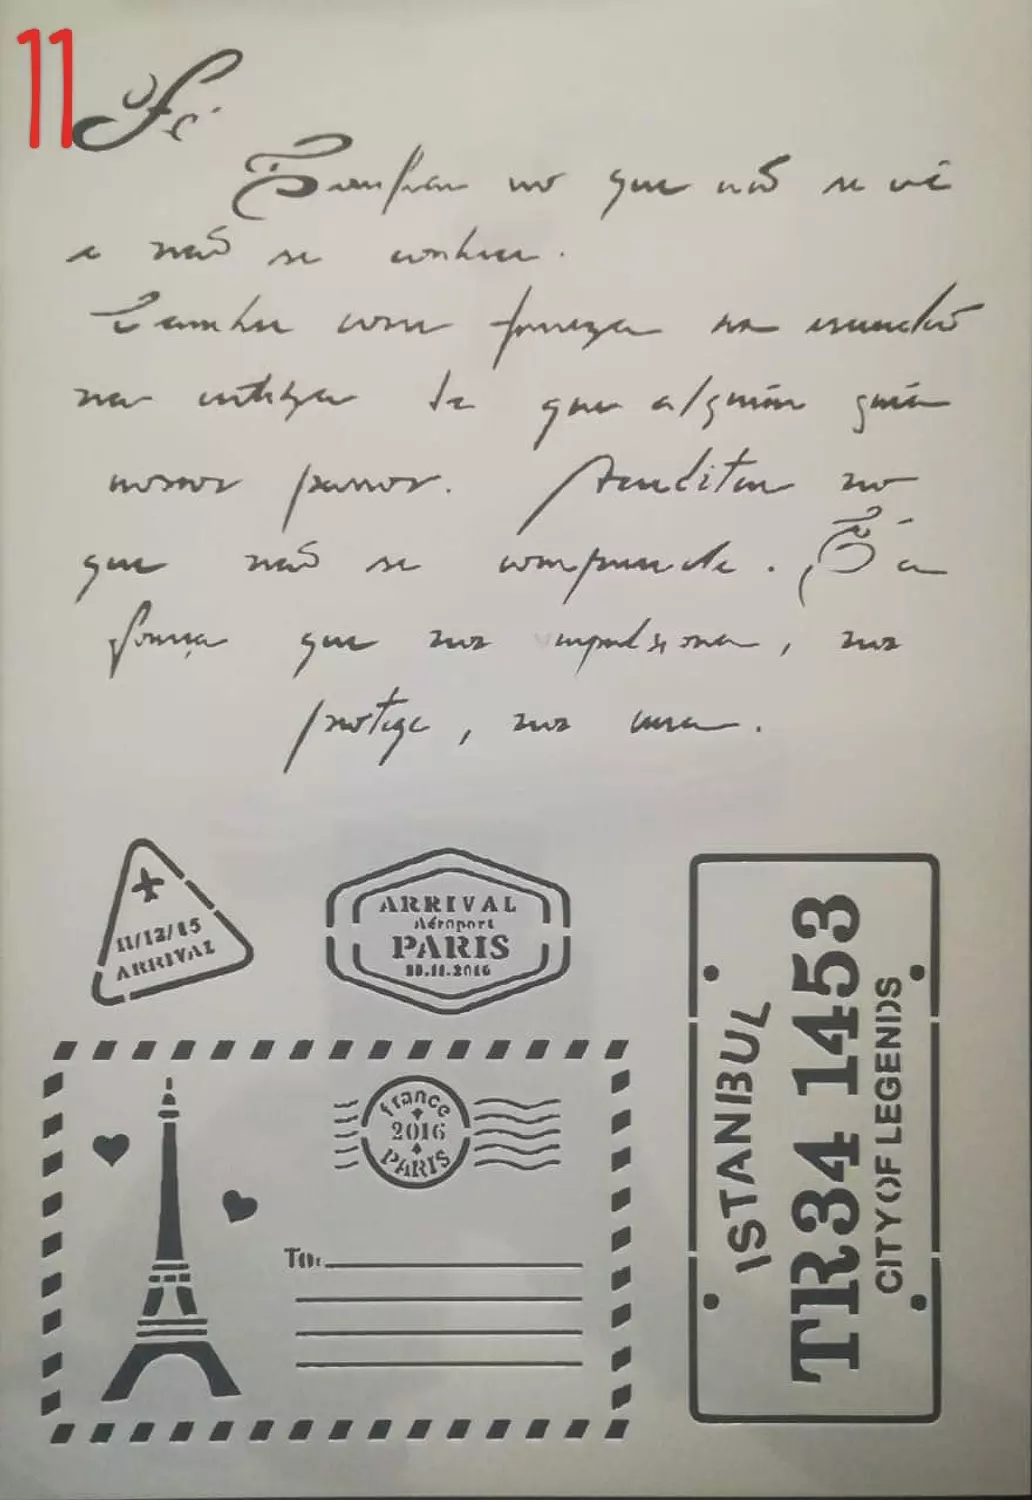 11
Fé
Confiar no que não se vê
e não se conhece.
Caminhar com firmeza na escuridão
na certeza de que alguém guia
nossos passos. Acreditar no
que não se compreende. É a
força que nos impulsiona, nos
protege, nos cura.
11/12/15
ARRIVAL
ARRIVAL
Aéroport
PARIS
2016
france
2016
PARIS
To:
ISTANBUL
TR34 1453
CITY OF LEGENDS